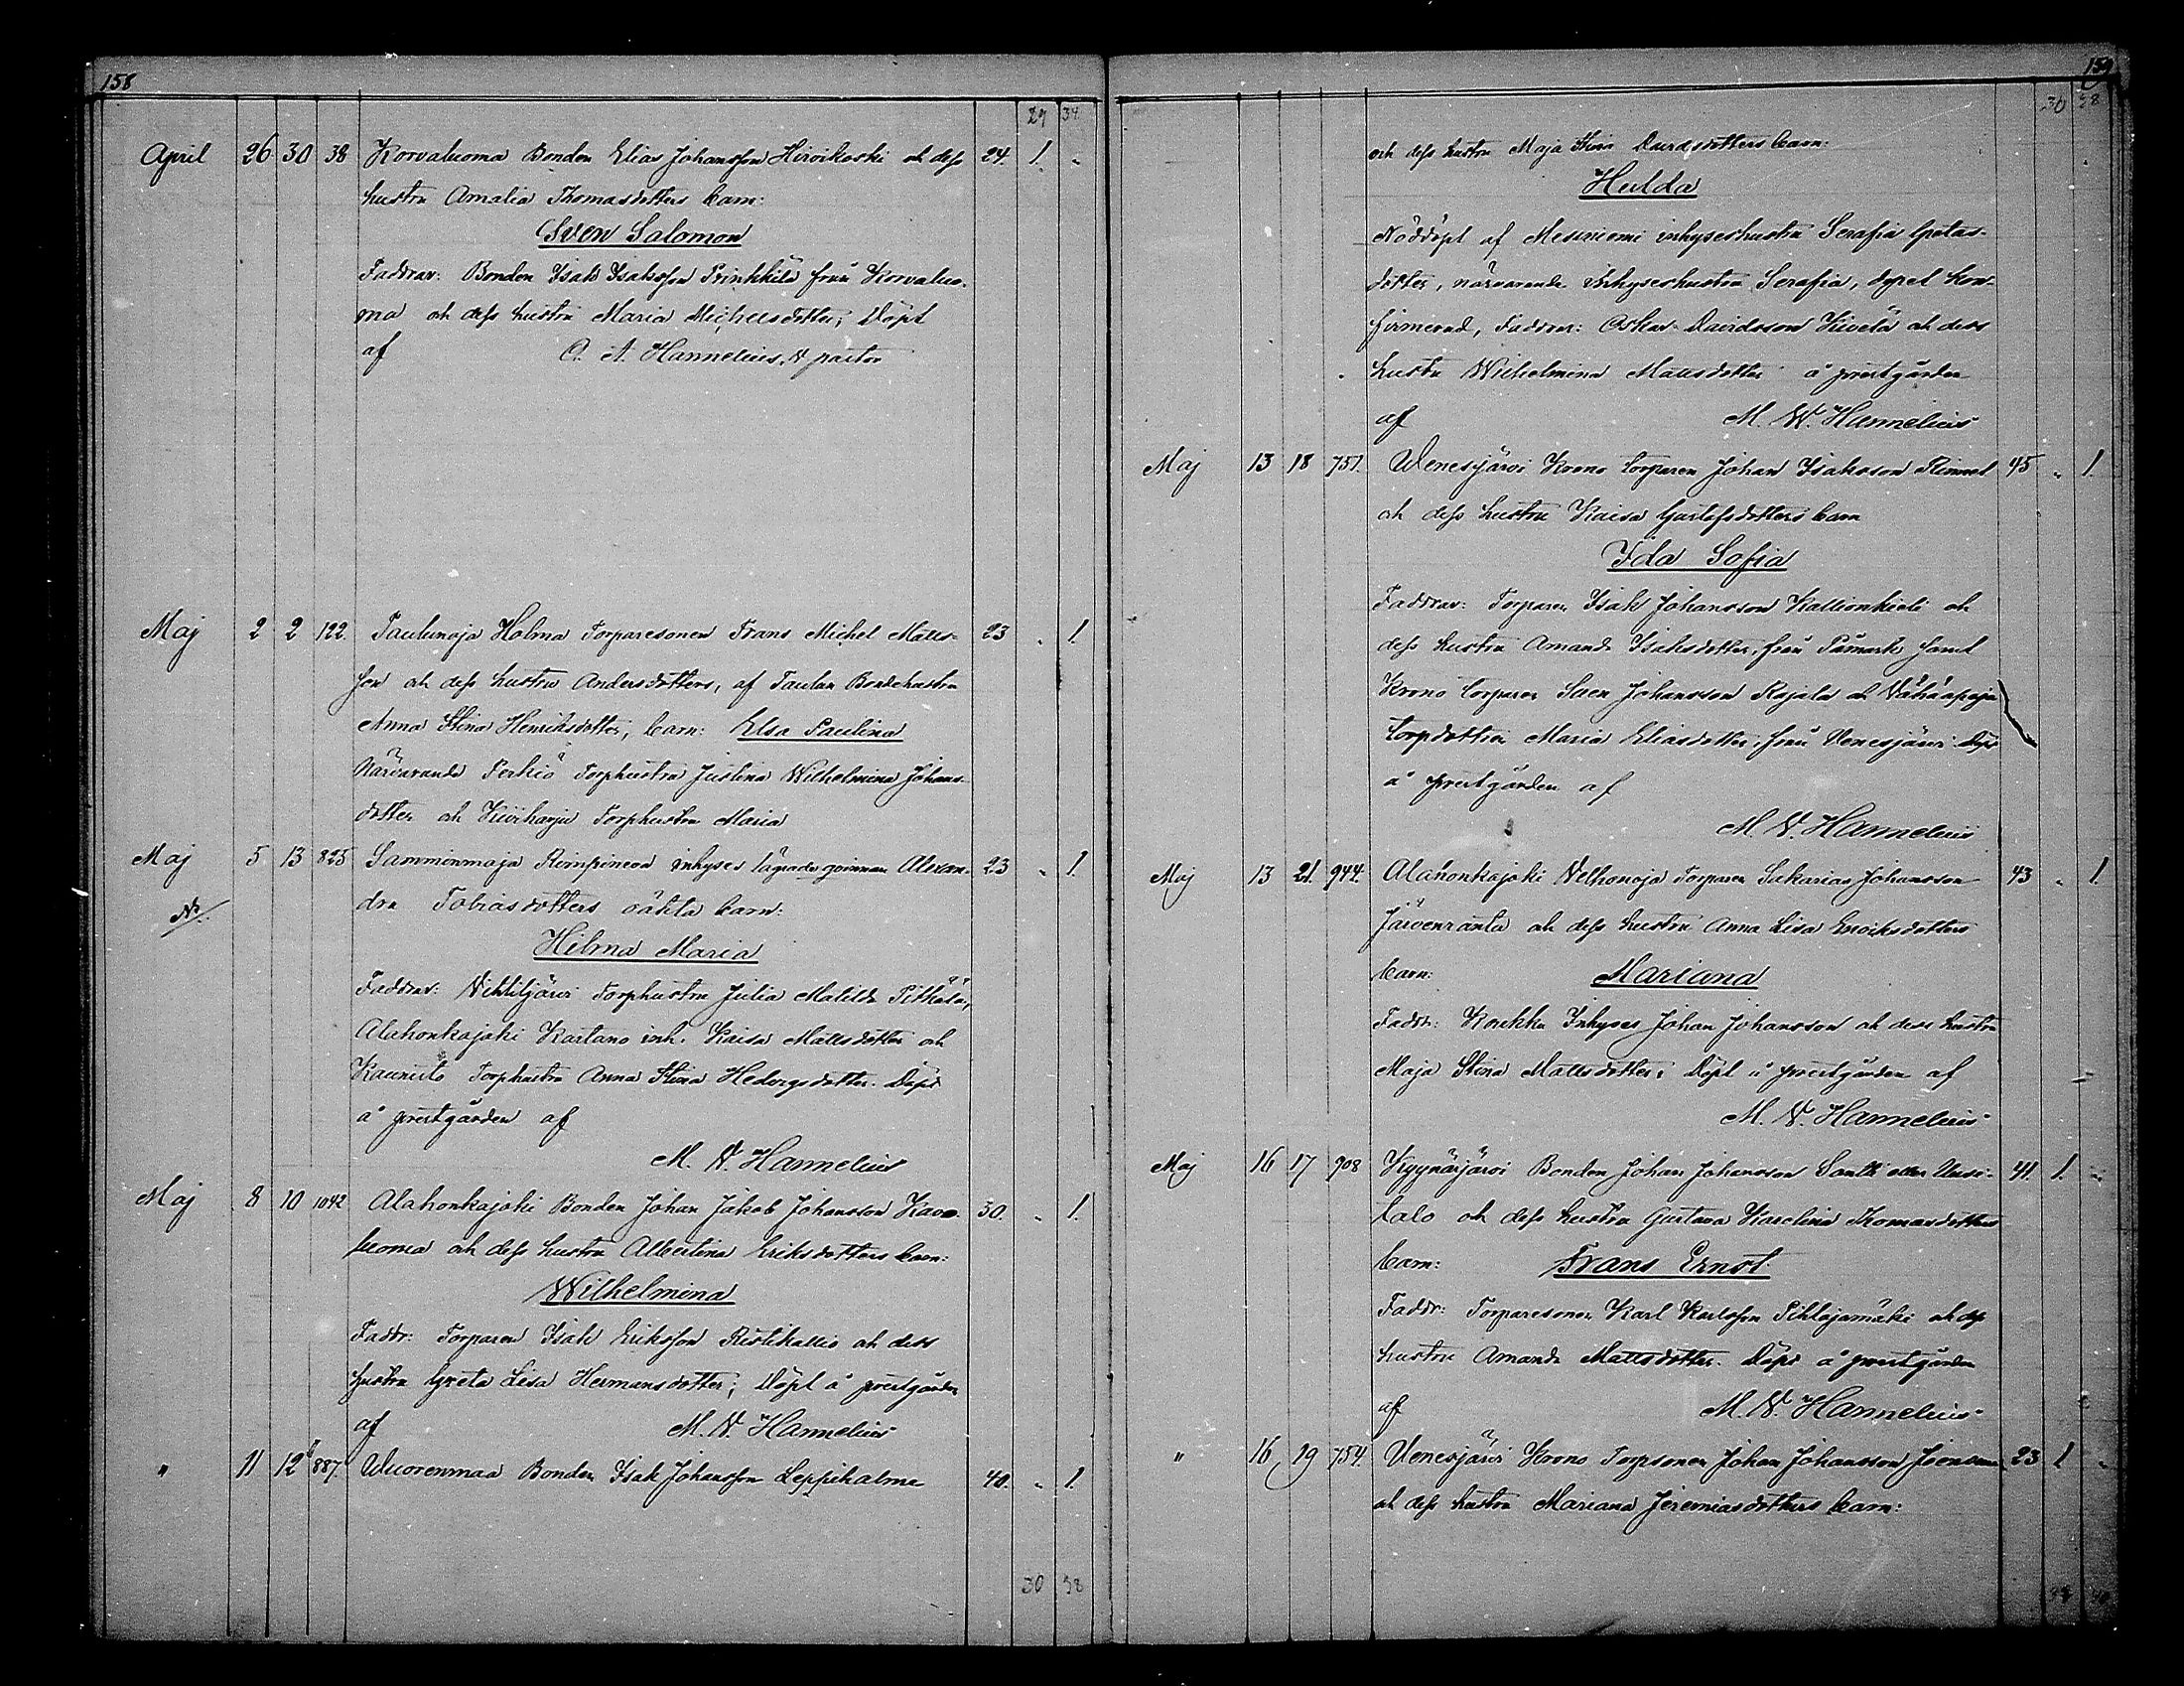 158
29 34
April 26 30 38 Korvaluoma Bonden Elias Johansson Hirvikoski och dess 24. 1. "
hustru Amalia Thomasdotters barn:
Sven Salomon
Faddrar: Bonden Isak Isaksson Prinkkilä från Korvaluo-
ma och dess hustru Maria Michelsdotter; Döpt
af A. A. Hannelius, v pastor
Maj 2 2 122. Paulunoja Holma Torparesonen Frans Michel Matts- 23 " 1.
son och dess hustru Andersdotters, af Paulun Bondehustru
Anna Stina Henriksdotter, barn: Elsa Paulina
Närvarande Perkiö Torphustru Justina Wilhelmina Johans-
dotter och Kiviharju Torphustru Maria
Maj 5 13 825 Samminmaja inhyses Alexan- 23 " 1.
dra Tobiasdotters oäkta barn:
Hilma Maria
Faddrar: Vihtiljärvi Torphustru Julia Matilda Pitkälä,
Alahonkajoki Kartano inh. Kaisa Mattsdotter och
Kaunisto Torphustru Anna Stina Hedvigsdotter. Döpt
å prestgården af
M. V. Hannelius
Maj 8 10 1042 Alahonkajoki Bonden Johan Jakob Johansson 30. " 1.
luoma och dess hustru Albertina Eriksdotters barn:
Wilhelmina
Faddr: Torparen Isak Eriksson Ristikallio och dess
hustru Greta Lisa Hermansdotter; Döpt å prestgården
af M. V. Hannelius
" 11 12 887. Wuorenmaa Bonden Isak Johansson Leppihalme 40. " 1.
30 38
159
30 38
och dess hustru Maja Stina Davidsdotters barn:
Hulda
Nöddöpt af Mesiniemi inhyseshustru Serafia
dotter, närvarande Inhyseshustru Serafia, dopet kon-
firmerad, Faddrar: Oskar Davidsson Kivelä och dess
hustru Wilhelmina Mattsdotter å prestgården
af M. V. Hannelius
Maj 13 18 751. Wenesjärvi Krono torparen Johan Isaksson 45 " 1.
och dess hustru Kaisa Gustafsdotters barn
Ida Sofia
Faddrar: Torparen Isak Johansson Kallionkieli och
dess hustru Amanda Isaksdotter, från Påmark samt
Krono torparen Johansson Rajala och Vähäapaja
torpdottren Maria Eliasdotter, från Venesjärvi. Döpt
å prestgården af
M. V. Hannelius
Maj 13 21. 944. Alahonkajoki Velhonoja Torparen Sakarias Johansson 43 " 1.
Järvenranta och dess hustru Anna Lisa Enoksdotters
barn: Mariana
Faddr: Koukku Inhyses Johan Johansson och dess hustru
Maja Stina Mattsdotter; Döpt å prestgården af
M. V. Hannelius
Maj 16 17 908 Kyynärjärvi Bonden Johan Johansson Santti eller Uusi- 41. 1. "
talo och dess hustru Gustava Karolina Thomasdotters
barn: Frans Ernst.
Faddr: Torparesonen Karl Karlsson Pihlajamäki och dess
hustru Amanda Mattsdotter. Döpt å prestgården
af M. V. Hannelius
" 16 19 754. Venesjärvi Krono Torpsonen Johan Johansson 23 1 "
och dess hustru Mariana Jeremiasdotters barn: